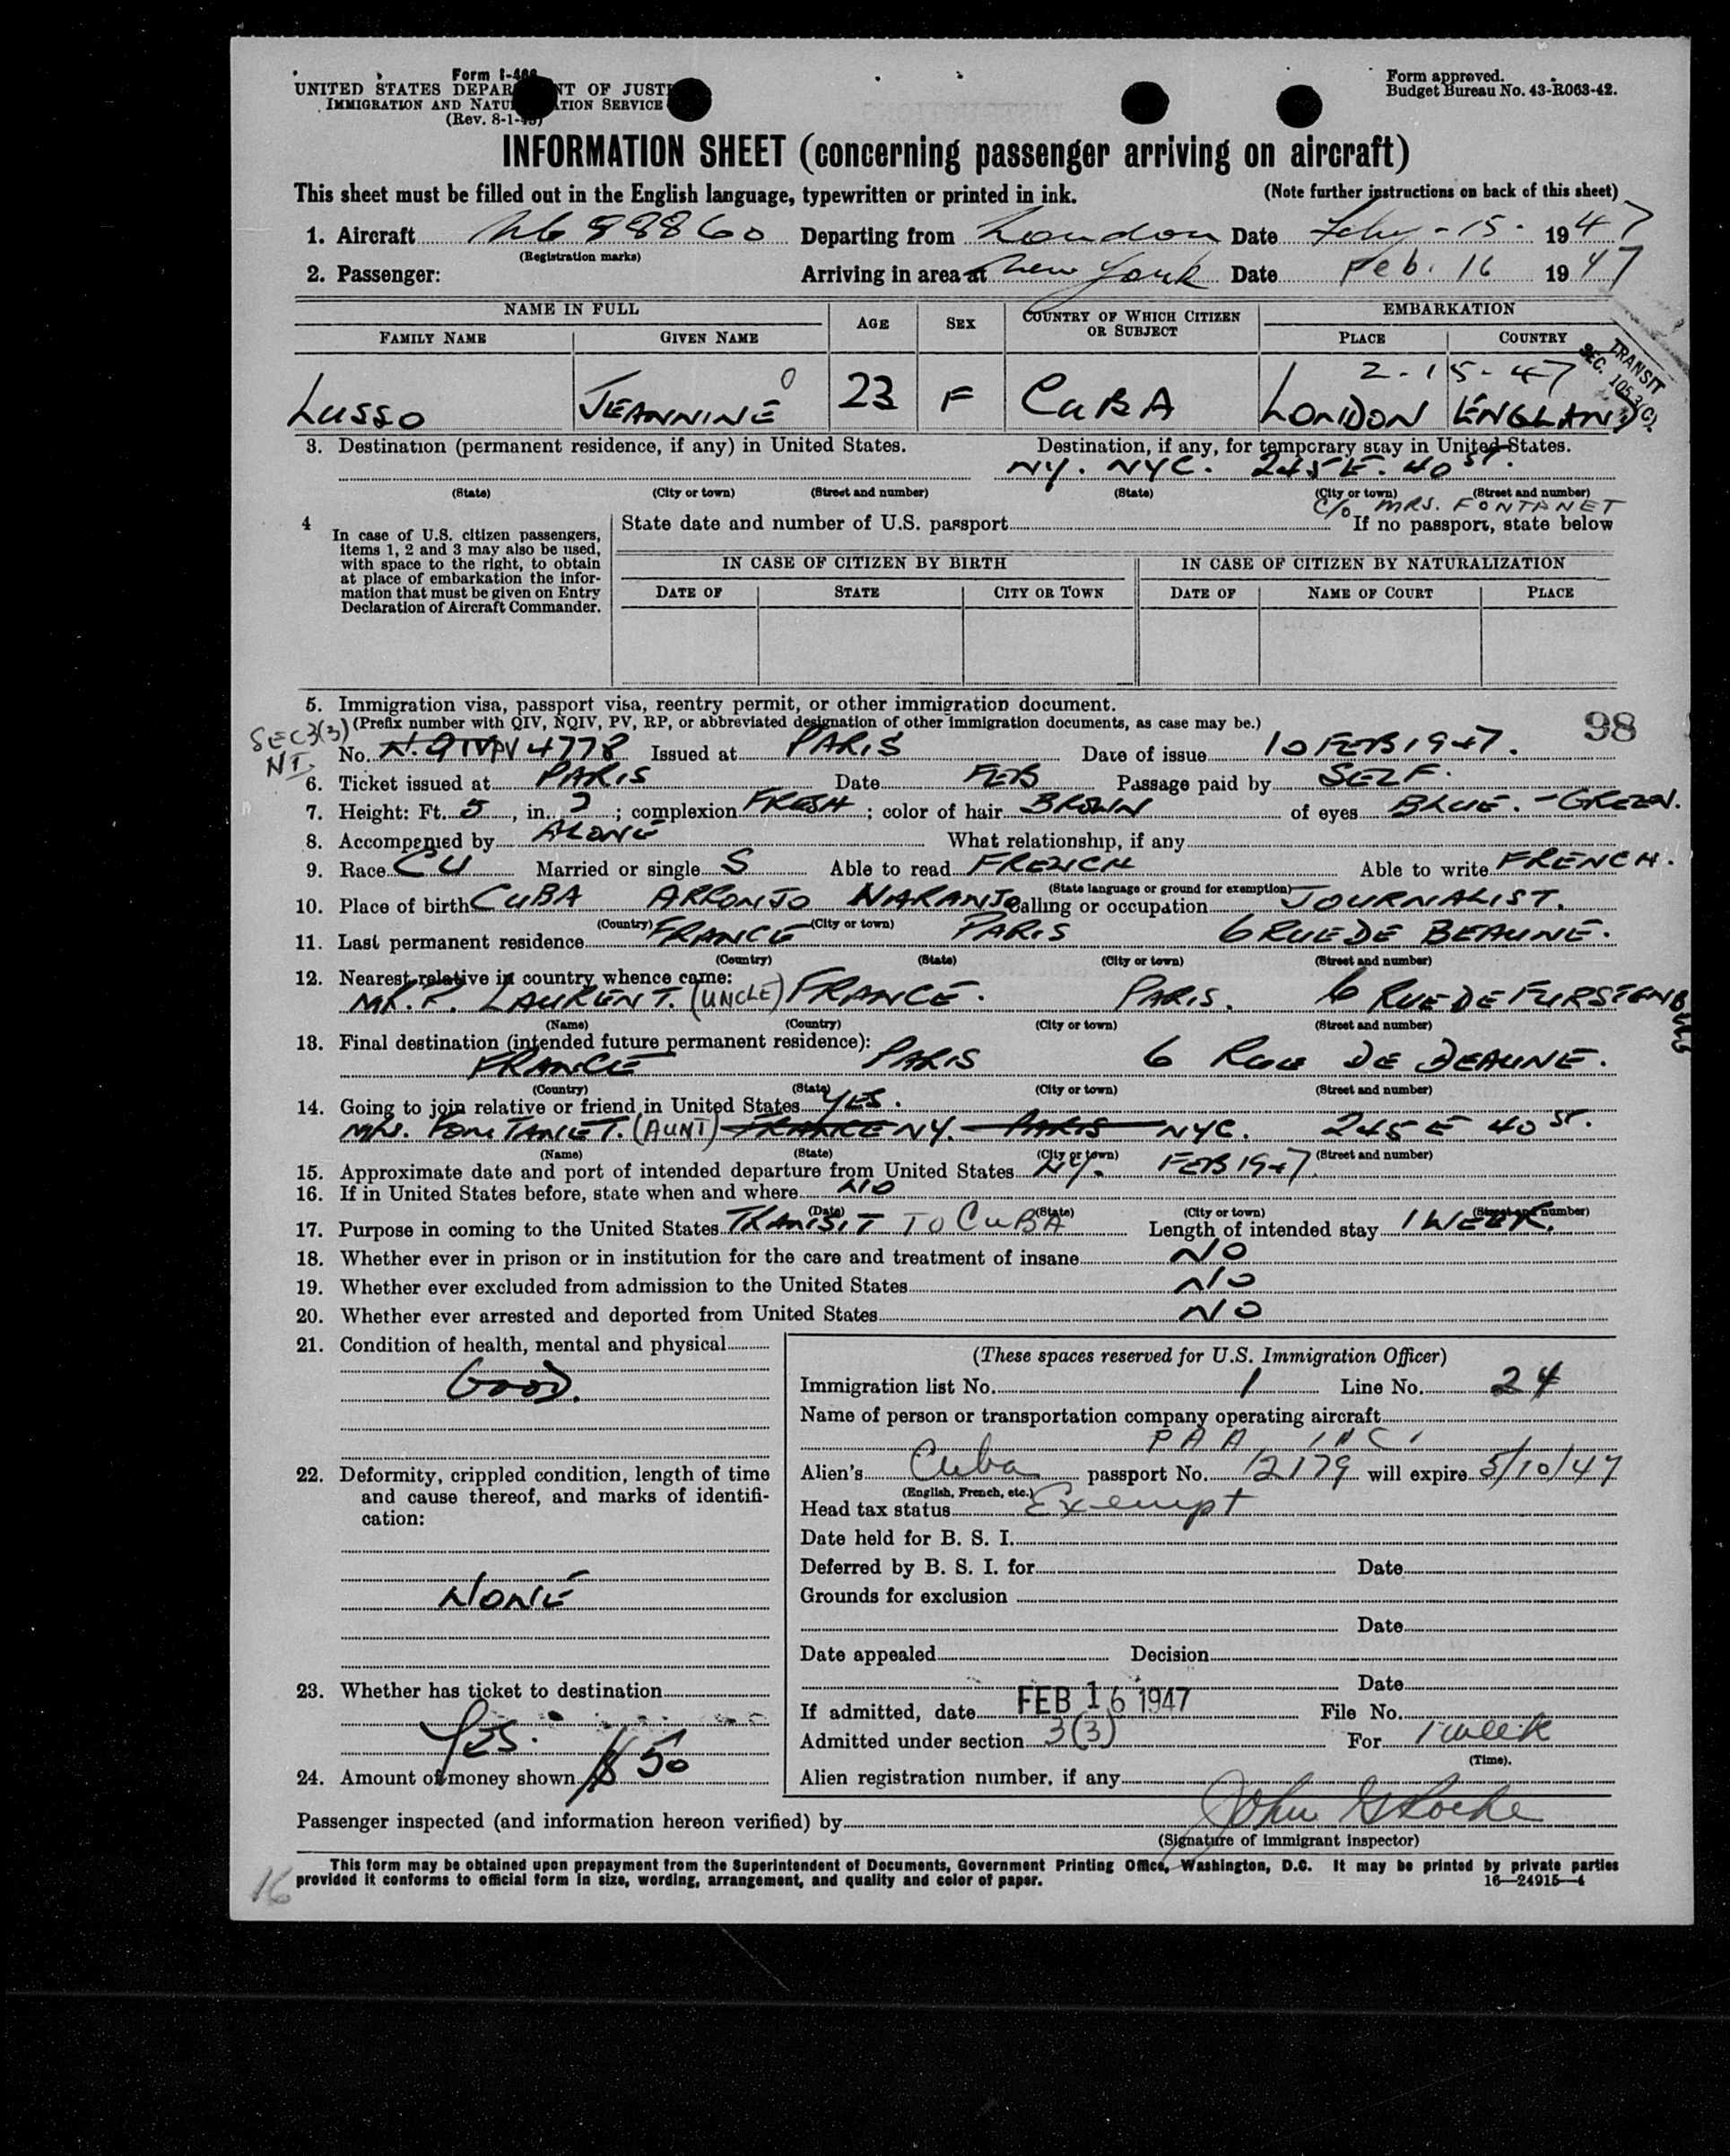 Form I-466
UNITED STATES DEPARTMENT OF JUSTICE
IMMIGRATION AND NATURALIZATION SERVICE
(Rev. 8-1-45)
Form approved.
Budget Bureau No. 43-R063-42.
INFORMATION SHEET (concerning passenger arriving on aircraft)
This sheet must be filled out in the English language, typewritten or printed in ink. (Note further instructions on back of this sheet)
1. Aircraft 88860 Departing from London Date Feby-15- 1947
(Registration marks)
2. Passenger: Arriving in area at New York Date Feb. 16 1947
NAME IN FULL AGE SEX COUNTRY OF WHICH CITIZEN OR SUBJECT EMBARKATION
FAMILY NAME GIVEN NAME PLACE COUNTRY
TRANSIT
SEC. 105.3(C).
2-15-47
LUSSO JEANNINE 0 23 F CUBA LONDON ENGLAND
3. Destination (permanent residence, if any) in United States. Destination, if any, for temporary stay in United States.
NY. NYC. 245 E. 40 ST.
(State) (City or town) (Street and number) (State) (City or town) (Street and number)
C/o MRS. FONTANET
4 In case of U.S. citizen passengers, items 1, 2 and 3 may also be used, with space to the right, to obtain at place of embarkation the information that must be given on Entry Declaration of Aircraft Commander.
State date and number of U.S. passport If no passport, state below
IN CASE OF CITIZEN BY BIRTH IN CASE OF CITIZEN BY NATURALIZATION
DATE OF STATE CITY OR TOWN DATE OF NAME OF COURT PLACE
5. Immigration visa, passport visa, reentry permit, or other immigration document.
(Prefix number with QIV, NQIV, PV, RP, or abbreviated designation of other immigration documents, as case may be.)
98
SEC 3(3)
NI.
No. 4778 Issued at PARIS Date of issue 10 FEB 1947.
6. Ticket issued at PARIS Date FEB Passage paid by SELF.
7. Height: Ft. 5, in. 2; complexion FRESH; color of hair BROWN of eyes BLUE.-GREEN.
8. Accompenied by ALONE What relationship, if any
9. Race CU Married or single S Able to read FRENCH Able to write FRENCH.
(State language or ground for exemption)
10. Place of birth CUBA ARRONJO NARANJO Calling or occupation JOURNALIST.
(Country) (City or town)
11. Last permanent residence FRANCE PARIS 6 RUE DE BEAUNE.
(Country) (State) (City or town) (Street and number)
12. Nearest relative in country whence came:
MR. P. LAURENT. (UNCLE) FRANCE. PARIS. 6 RUE DE FURSTENBERG
(Name) (Country) (City or town) (Street and number)
13. Final destination (intended future permanent residence):
FRANCE PARIS 6 RUE DE BEAUNE.
(Country) (State) (City or town) (Street and number)
14. Going to join relative or friend in United States YES.
MRS. FONTANET. (AUNT) FRANCE NY. PARIS NYC. 245 E 40 ST.
(Name) (State) (City or town) (Street and number)
15. Approximate date and port of intended departure from United States N.Y. FEB 1947.
16. If in United States before, state when and where NO
(Date) (State) (City or town) (Street and number)
17. Purpose in coming to the United States TRANSIT TO CUBA Length of intended stay 1 WEEK.
18. Whether ever in prison or in institution for the care and treatment of insane NO
19. Whether ever excluded from admission to the United States NO
20. Whether ever arrested and deported from United States NO
21. Condition of health, mental and physical
GOOD.
22. Deformity, crippled condition, length of time and cause thereof, and marks of identification:
NONE
23. Whether has ticket to destination
YES.
24. Amount of money shown $50
(These spaces reserved for U.S. Immigration Officer)
Immigration list No. 1 Line No. 24
Name of person or transportation company operating aircraft
PAA INC.
Alien's Cuba passport No. 12179 will expire 5/10/47
(English, French, etc.)
Head tax status Exempt
Date held for B. S. I.
Deferred by B. S. I. for Date
Grounds for exclusion
Date
Date appealed Decision
Date
If admitted, date FEB 16 1947 File No.
Admitted under section 3(3) For 1 week
(Time).
Alien registration number, if any
Passenger inspected (and information hereon verified) by John G Roche
(Signature of immigrant inspector)
This form may be obtained upon prepayment from the Superintendent of Documents, Government Printing Office, Washington, D.C. It may be printed by private parties
provided it conforms to official form in size, wording, arrangement, and quality and color of paper. 16—24915—4
16